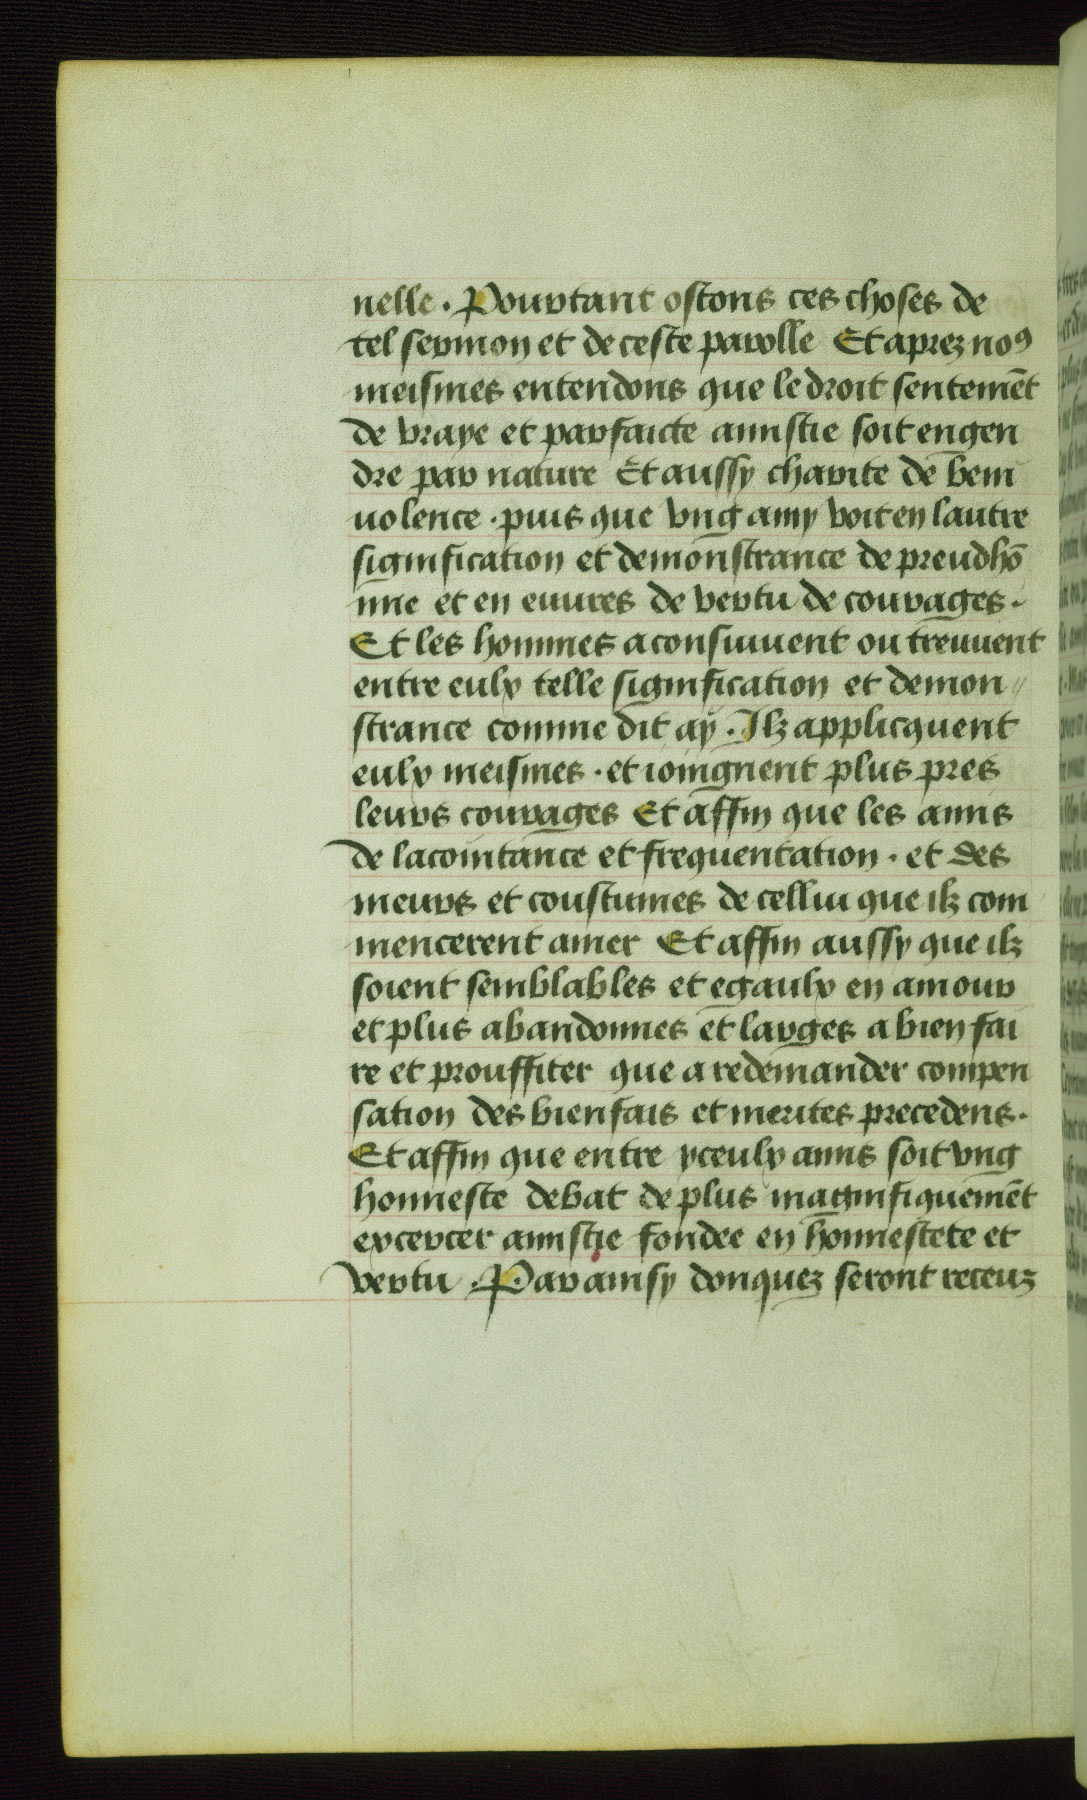 nelle · Pourtant ostons ces choses de
tel sermon et de ceste parolle Et aprez noꝯ
meismes entendons que le droit sentemēt
de vraye et parfaicte amistie soit engen
dre par nature Et aussy charite de beni
uolence · puis que vng amy voit en lautre
signification et demonstrance de preudhō
mie et en euures de vertu de courages ·
Et les hommes aconsuiuent ou treuuent
entre eulx telle signification et demon //
strance comme dit ay · Ilz applicquent
eulx meismes · et ioingnent plus pres
leurs courages Et affin que les amis
de lacointance et frequentation · et des
meurs et coustumes de cellui que ilz com
mencerent amer Et affin aussy que ilz
soient semblables et egaulx en amour
et plus abandonnes et larges a bien fai
re et prouffiter que a redemander compen
sation des bienfais et merites precedens ·
Et affin que entre yceulx amis soit vng
honneste debat de plus magnifiquemēt
excercer amistie fondee en honnestete et
vertu · Par ainsy donquez seront receuz